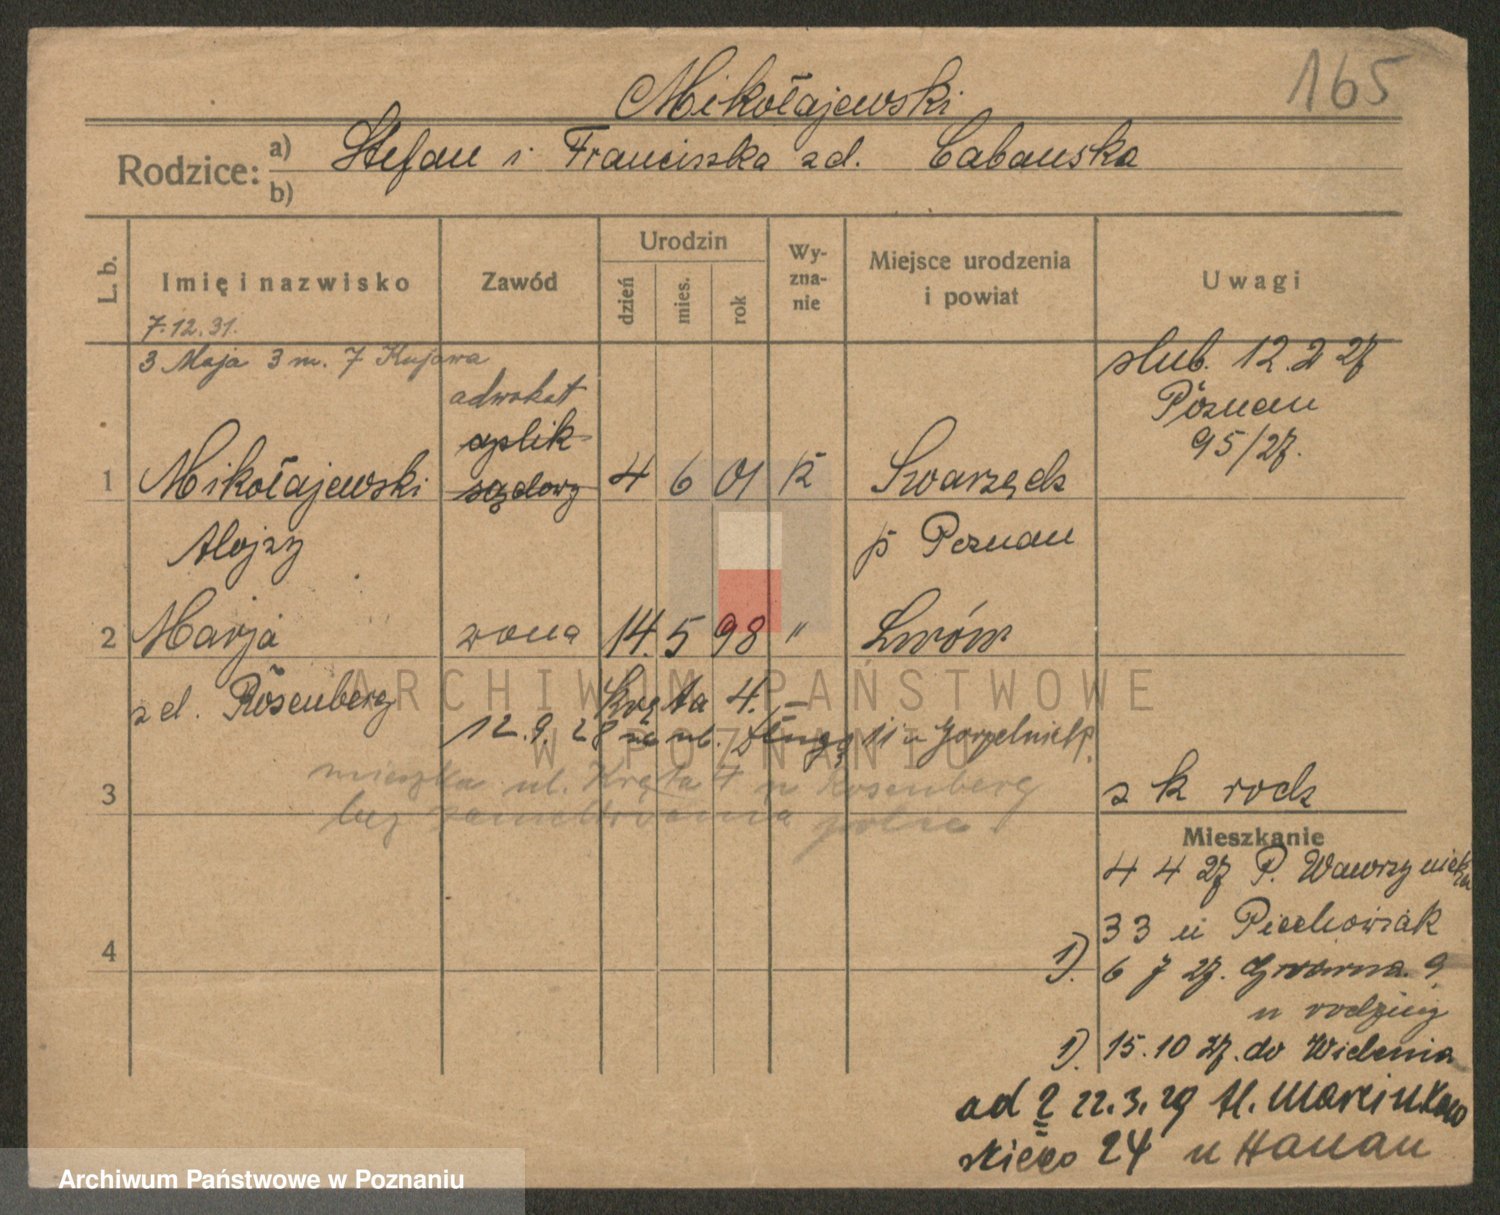 165
Mikołajewski
Rodzice: a) Stefan i Franciszka zd. Cabańska
b)
L. b. Imię i nazwisko Zawód Urodzin dzień mies. rok Wy-zna-nie Miejsce urodzenia i powiat Uwagi
7.12.31.
3 Maja 3 m. 7 Kujawa
ślub. 12.2 27
Poznań
95/27.
adwokat
aplik
sądowy
1 Mikołajewski 4 6 01 k Swarzędz
Alojzy p Poznań
2 Marja żona 14. 5 98 " Lwów
zd. Rosenberg Kręta 4.
12.9.28 na ul. Długą 11 u
mieszka ul. Kręta 4 u Rosenberg
bez zameldowania
3 z k rodz
Mieszkanie
4 4 27 P. Wawrzyniek
33 u Piechowiak
1). 6 7 27. Gwarna 9
u rodziny
4
1). 15.10 27. do Wielenia
ad 2 22.3.29 Al. Marcinkow
skiego 24 u Hanau
ARCHIWUM PAŃSTWOWE
W POZNANIU
Archiwum Państwowe w Poznaniu